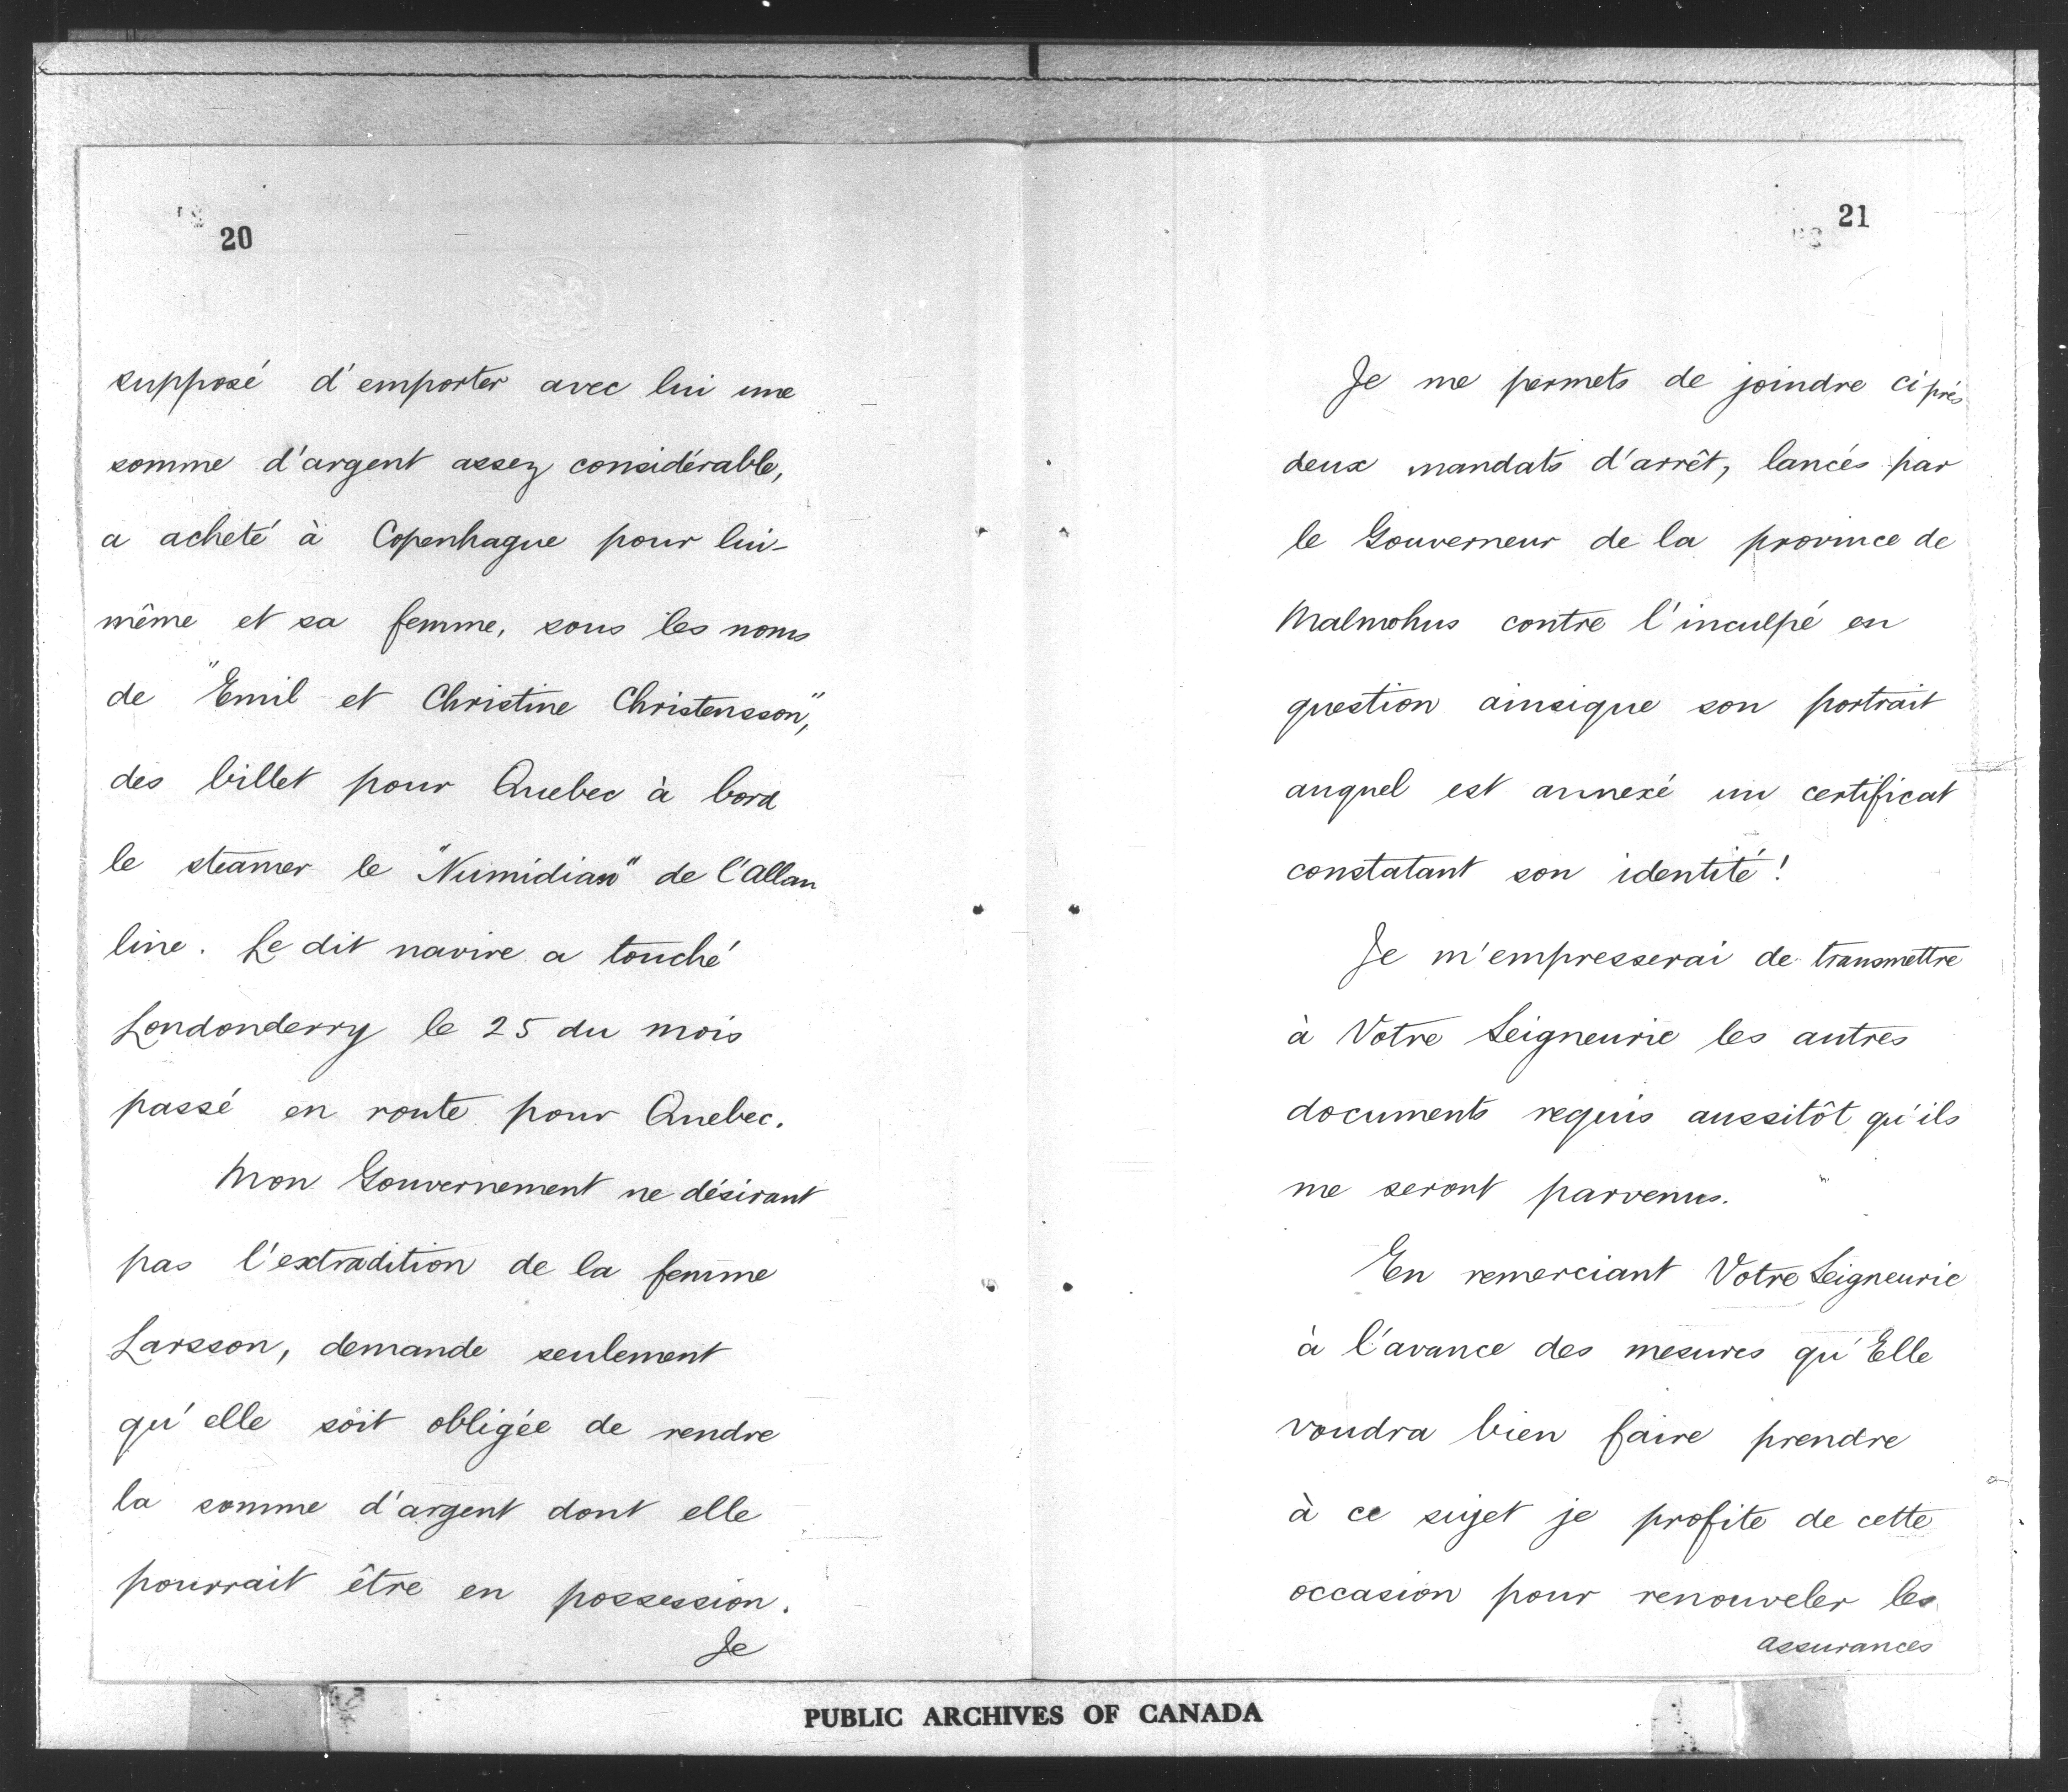 20
supposé d'emporter avec lui une
somme d'argent assez considérable,
a acheté à Copenhague pour lui-
même et sa femme, sous les noms
de "Emil et Christine Christensson",
des billet pour Quebec à bord
le steamer le "Numidian" de l'Allan
line. Le dit navire a touché
Londonderry le 25 du mois
passé en route pour Quebec.
Mon Gouvernement ne désirant
pas l'extradition de la femme
Larsson, demande seulement
qu'elle soit obligée de rendre
la somme d'argent dont elle
pourrait être en possession.
Je
21
Je me permets de joindre ci près
deux mandats d'arrêt, lancés par
le Gouverneur de la province de
Malmohus contre l'inculpé en
question ainsique son portrait
auquel est annexé un certificat
constatant son identité!
Je m'empresserai de transmettre
à Votre Seigneurie les autres
documents requis aussitôt qu'ils
me seront parvenus.
En remerciant Votre Seigneurie
à l'avance des mesures qu'Elle
voudra bien faire prendre
à ce sujet je profite de cette
occasion pour renouveler les
assurances
PUBLIC ARCHIVES OF CANADA